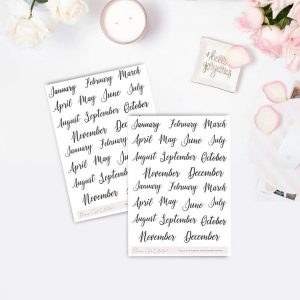 hello
gorgeous
January February March
April May June July
August September October
November December
January February March
April May June July
August September
November
January February March
April May June July
August September October
November December
January February March
April May June July
August September October
November December